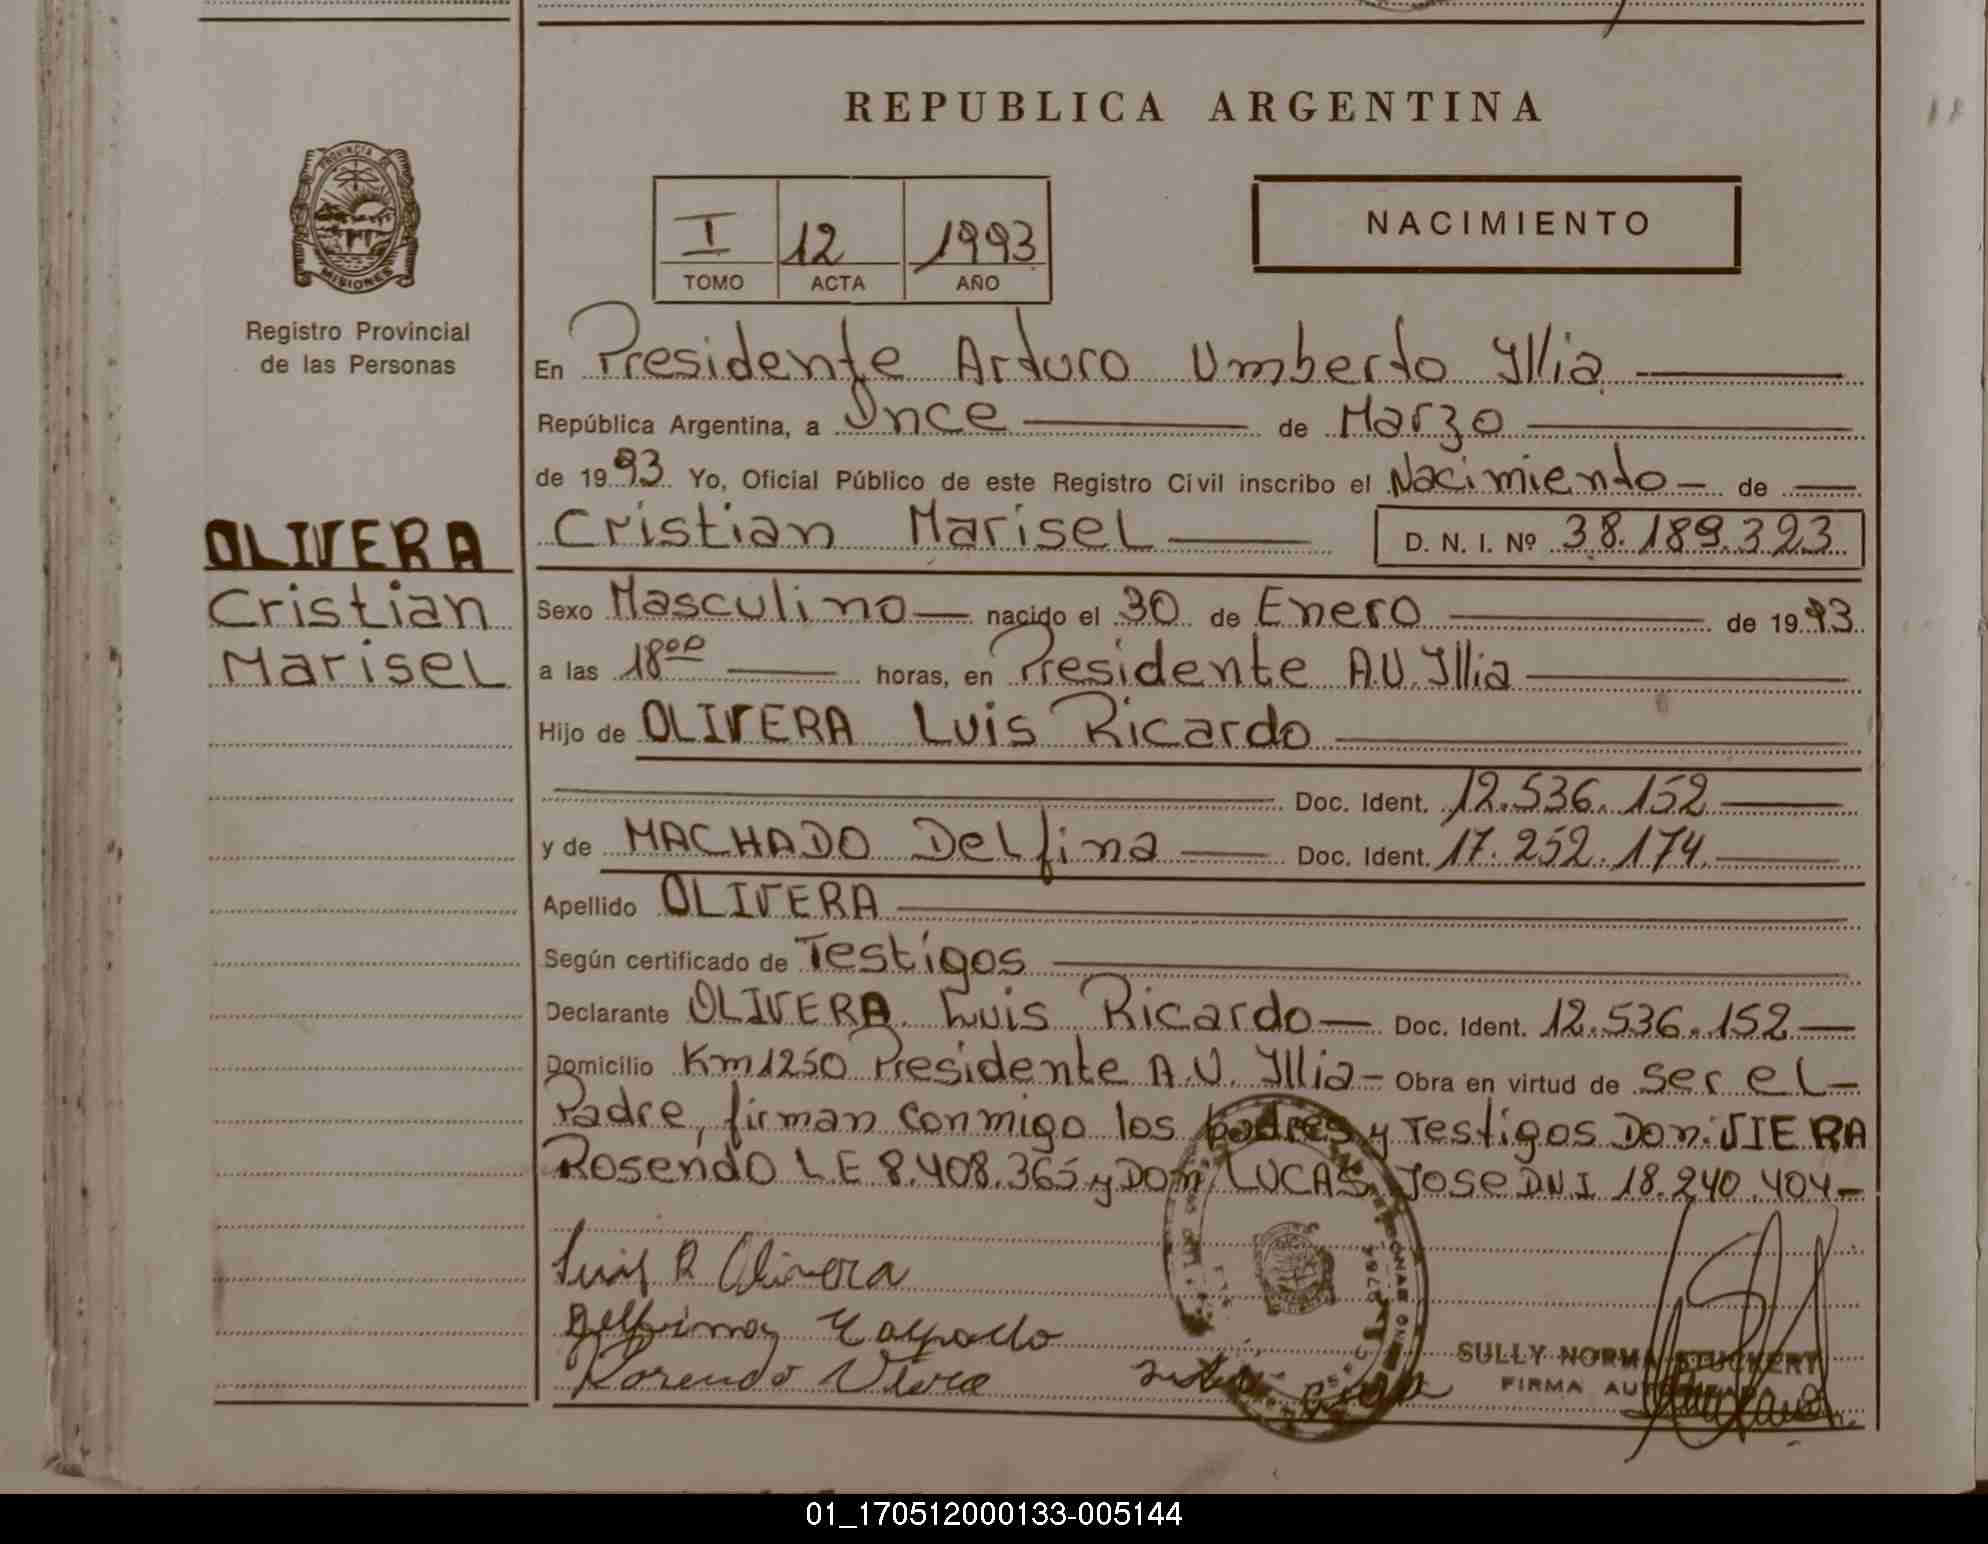 REPUBLICA ARGENTINA
PROVINCIA DE
MISIONES
Registro Provincial
de las Personas
I 12 1993
TOMO ACTA AÑO
NACIMIENTO
En Presidente Arturo Umberto Illia
República Argentina, a Once de Marzo
de 1993 Yo, Oficial Público de este Registro Civil inscribo el Nacimiento de
Cristian Marisel D. N. I. Nº 38.189.323
OLIVERA
Cristian
Marisel
Sexo Masculino nacido el 30 de Enero de 1993
a las 18ºº horas, en Presidente A.U. Illia
Hijo de OLIVERA Luis Ricardo
Doc. Ident. 12.536.152
y de MACHADO Delfina Doc. Ident. 17.252.174
Apellido OLIVERA
Según certificado de Testigos
Declarante OLIVERA Luis Ricardo Doc. Ident. 12.536.152
Domicilio Km 1250 Presidente A.U. Illia Obra en virtud de ser el
Padre, firman conmigo los padres y Testigos Don: VIERA
Rosendo L.E 8.408.365 y Don LUCAS Jose DNI 18.240.404
Luis R Olivera
SULLY NORMA STUCKERT
FIRMA AUTORIZADA
01_170512000133-005144